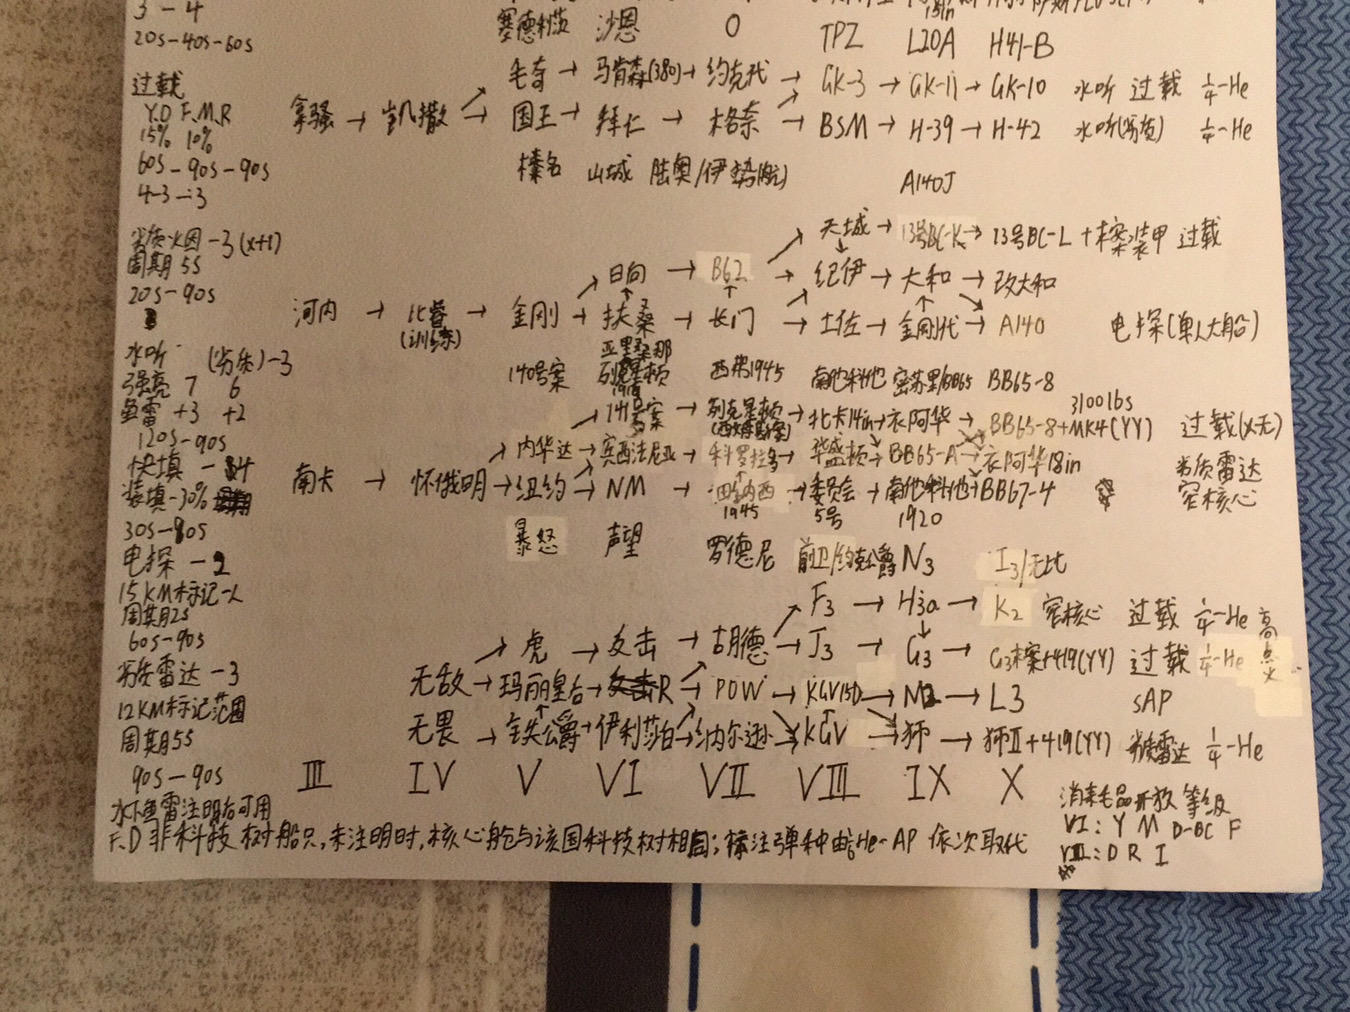 3-4
20s-40s-60s
塞德利茨 沙恩 O TPZ L20A H41-B
过载
Y.D F.M.R
15% 10%
60s-90s-90s
4-3-3
毛奇 → 马肯森(380) → 约克代 → GK-3 → GK-11 → GK-10 水听 过载 ¼-He
拿骚 → 凯撒 → 国王 → 拜仁 → 格奈 → BSM → H-39 → H-42 水听(劣质) ¼-He
榛名 山城 陆奥/伊势(航) A140J
劣质火因-3(x+1)
周期5s
20s-90s
天城 → 13号BC-K → 13号BC-L+案装甲 过载
日向 → B62 → 纪伊 → 大和 → 改大和
河内 → 比睿(训练) → 金刚 → 扶桑 → 长门 → 土佐 → 金刚代 → A140 电探(单人大船)
水听 (劣质)-3
强亮 7 6
鱼雷+3 +2
120s-90s
快填-4
装填-30%
30s-80s
140号案 亚里桑那 列克星顿1916 西弗1945 南他科他 密苏里/BB65 BB65-8
141号案 → 列克星顿 → 北卡14in → 衣阿华 → BB65-8+MK4(YY) 3100lbs 过载(X无)
内华达 → 宾西法尼亚 → 科罗拉多 → 华盛顿 → BB65-A → 衣阿华18in 劣质雷达
南卡 → 怀俄明 → 纽约 → NM → 田纳西1945 → 委员会5号 → 南他科他1920 → BB67-4 容核心
电探-2
15KM标记-人
周期2s
60s-90s
暴怒 声望 罗德尼 前卫/约克公爵 N3 I3/无比
F3 → H3a → K2 容核心 过载 ¼-He 高点火
劣质雷达-3
12KM标记范围
周期5s
90s-90s
虎 → 反击 → 胡德 → J3 → G3 → G3案+419(YY) 过载 ¼-He
无敌 → 玛丽皇后 → R → POW → KGV15D → N2 → L3 SAP
无畏 → 铁公爵 → 伊利莎白 → 纳尔逊 → KGV → 狮 → 狮II+419(YY) 劣质雷达 ¼-He
III IV V VI VII VIII IX X
消耗品开放等级
VI: Y M D-BC F
VIII: D R I
水下鱼雷注明后可用
F.D非科技树船只,未注明时,核心舱与该国科技树相同;标注弹种由He-AP依次取代